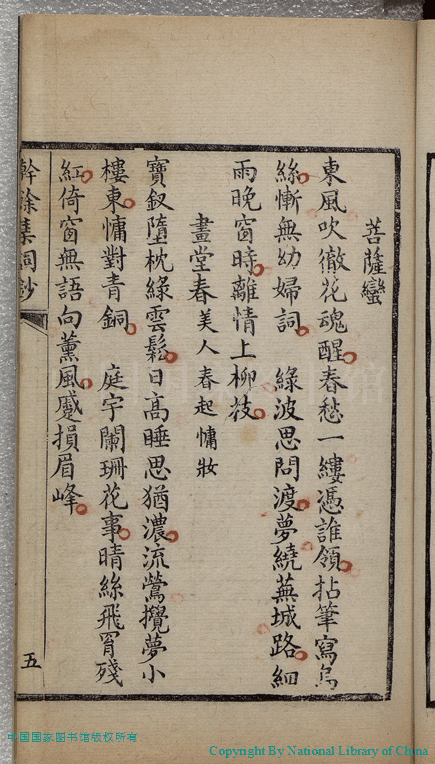 菩薩蠻
東風吹徹花魂醒春愁一縷憑誰領拈筆寫烏
絲慚無幼婦詞　綠波思問渡夢繞蕪城路細
雨晚窗時離情上柳枝
畫堂春美人春起慵妝
寶釵墮枕綠雲鬆日高睡思猶濃流鶯攪夢小
樓東慵對青銅　庭宇闌珊花事晴絲飛罥殘
紅倚窗無語向薰風蹙損眉峰
餘集詞鈔
五
中国国家图书馆版权所有
Copyright By National Library of China